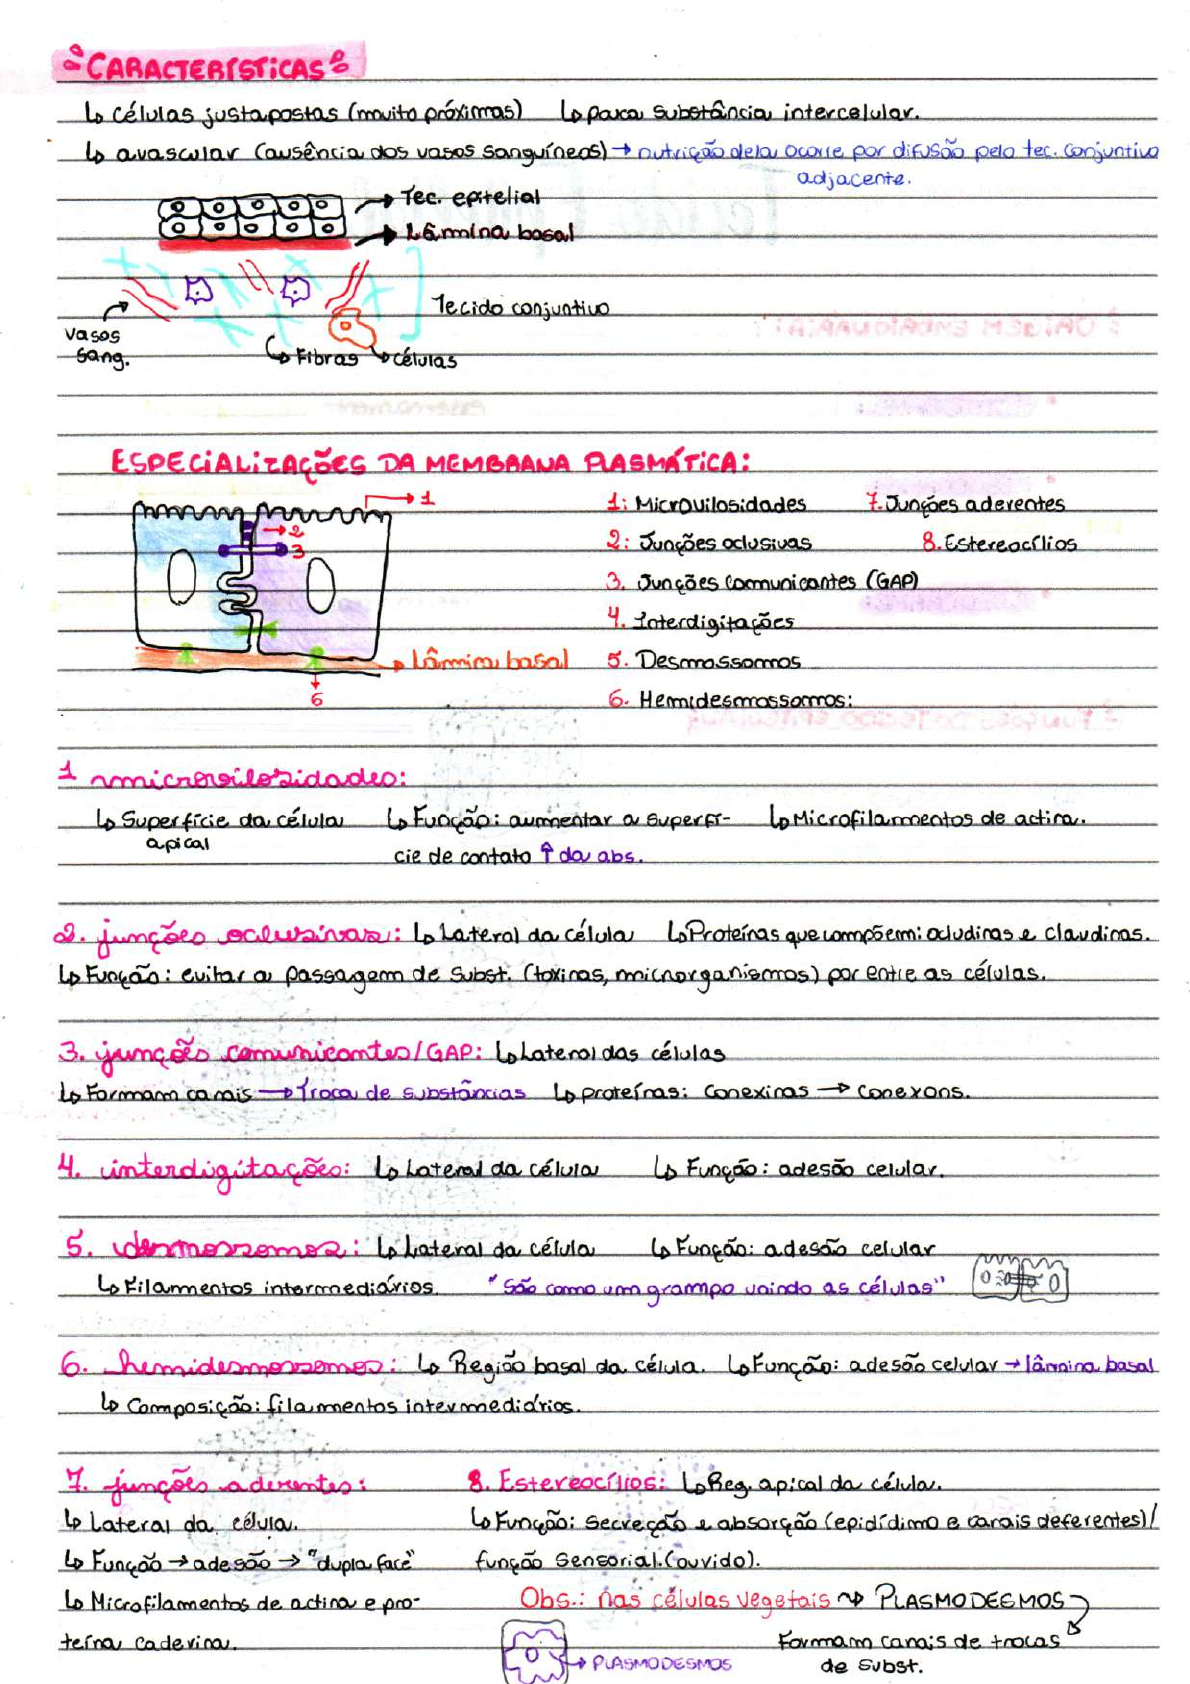 CARACTERÍSTICAS
↳ células justapostas (muito próximas) ↳ pouca substância intercelular.
↳ avascular (ausência dos vasos sanguíneos) → nutrição dela ocorre por difusão pelo tec. conjuntivo
adjacente.
→ Tec. epitelial
→ Lâmina basal
Tecido conjuntivo
Vasos
sang.
↳ Fibras ↳ células
ESPECIALIZAÇÕES DA MEMBRANA PLASMÁTICA:
→ 1
→ 2
3
→ Lâmina basal
6
1: Microvilosidades 7. Junções aderentes
2: Junções oclusivas 8. Estereocílios
3. Junções comunicantes (GAP)
4. Interdigitações
5. Desmossomos
6. Hemidesmossomos:
1 microvilosidades:
↳ Superfície da célula ↳ Função: aumentar a superfí- ↳ Microfilamentos de actina.
apical
cie de contato ↑ da abs.
2. junções oclusivas: ↳ Lateral da célula ↳ Proteínas que compõem: ocludinas e claudinas.
↳ Função: evitar a passagem de subst. (toxinas, microrganismos) por entre as células.
3. junções comunicantes/GAP: ↳ Lateral das células
↳ Formam canais → Troca de substâncias ↳ proteínas: conexinas → conexons.
4. interdigitações: ↳ Lateral da célula ↳ Função: adesão celular.
5. desmossomos: ↳ Lateral da célula ↳ Função: adesão celular
↳ Filamentos intermediários. "São como um grampo unindo as células"
6. hemidesmossomos: ↳ Região basal da célula. ↳ Função: adesão celular → lâmina basal
↳ Composição: filamentos intermediários.
7. junções aderentes:
↳ Lateral da célula.
↳ Função → adesão → "dupla face"
↳ Microfilamentos de actina e pro-
teína caderina.
8. Estereocílios: ↳ Reg. apical da célula.
↳ Função: secreção e absorção (epidídimo e canais deferentes)/
função sensorial. (ouvido).
Obs.: nas células vegetais ~> PLASMODESMOS
Formam canais de trocas
de subst.
→ PLASMODESMOS